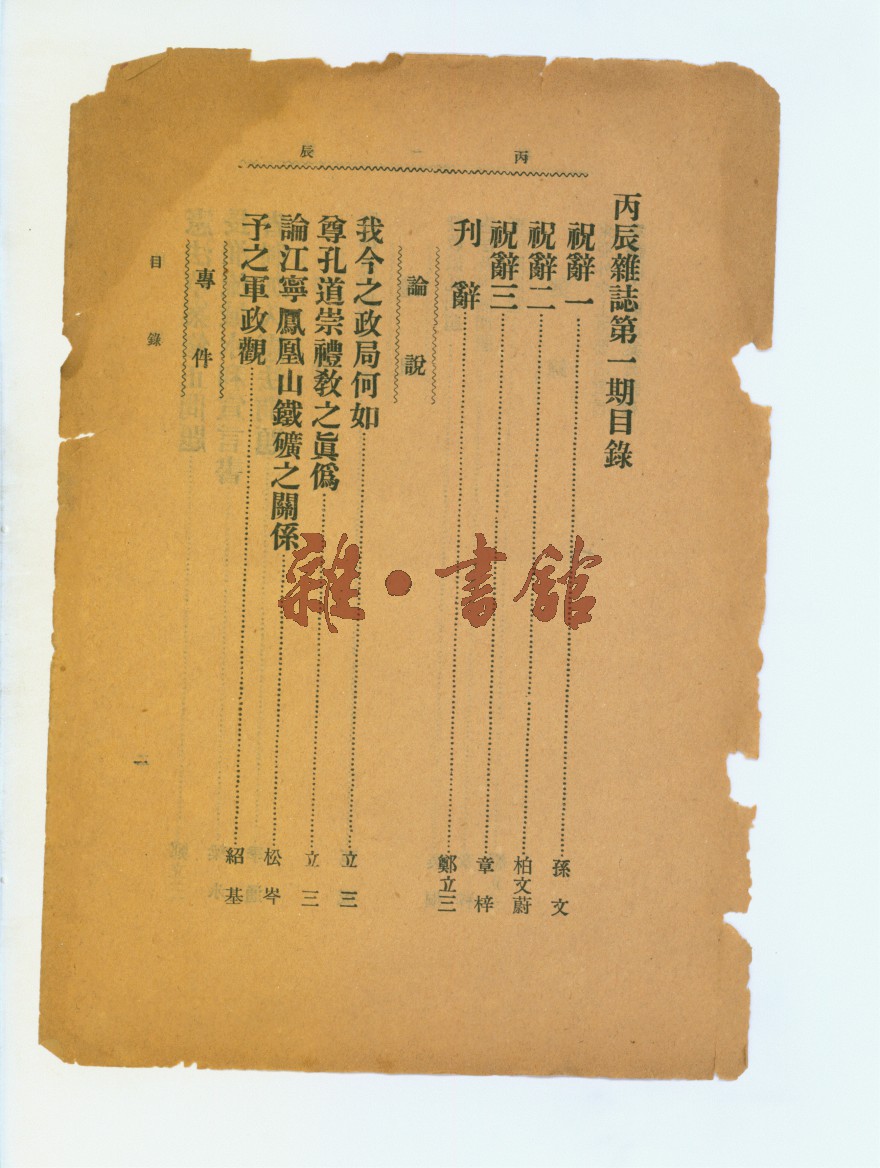 丙辰雜誌第一期目錄
丙 一 辰
祝辭一 孫文
祝辭二 柏文蔚
祝辭三 章梓
刊辭 鄭立三
論說
我今之政局何如 立三
尊孔道崇禮教之眞僞 立三
論江寧鳳凰山鐵礦之關係 松岑
予之軍政觀 紹基
專件
目錄
雜·書館